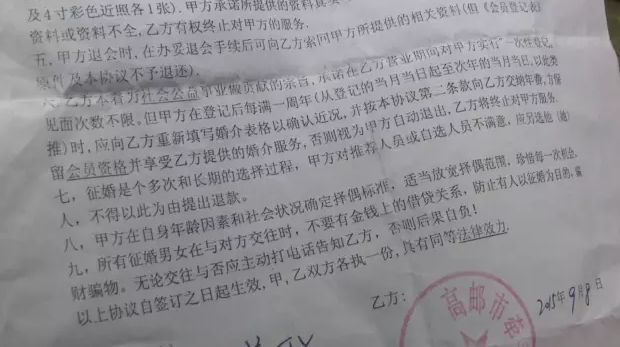 及4寸彩色近照各1张). 甲方承诺所提供的资料真
资料或资料不全, 乙方有权终止对甲方的服务.
五, 甲方退会时, 在办妥退会手续后可向乙方索回甲方所提供的相关资料(但《会员登记表》
原件及本协议不予退还).
六, 乙方本着为社会公益事业做贡献的宗旨, 承诺在乙方营业期间对甲方实行"一次性登记,
见面次数不限, 但甲方在登记后每满一周年(从登记的当月当日起至次年的当月当日, 以此类
推)时, 应向乙方重新填写婚介表格以确认近况, 并按本协议第二条款向乙方交纳年费, 方保
留会员资格并享受乙方提供的婚介服务, 否则视为甲方自动退出, 乙方将终止对甲方服务.
七, 征婚是个多次和长期的选择过程, 甲方对推荐人员或自选人员不满意, 应另选他(她)
人, 不得以此为由提出退款.
八, 甲方在自身年龄因素和社会状况确定择偶标准, 适当放宽择偶范围, 珍惜每一次机会.
九, 所有征婚男女在与对方交往时, 不要有金钱上的借贷关系, 防止有人以征婚为目的, 骗
财骗物. 无论交往与否应主动打电话告知乙方, 否则后果自负!
以上协议自签订之日起生效, 甲, 乙双方各执一份, 具有同等法律效力.
乙方:
高邮市牵
2015年9月8日